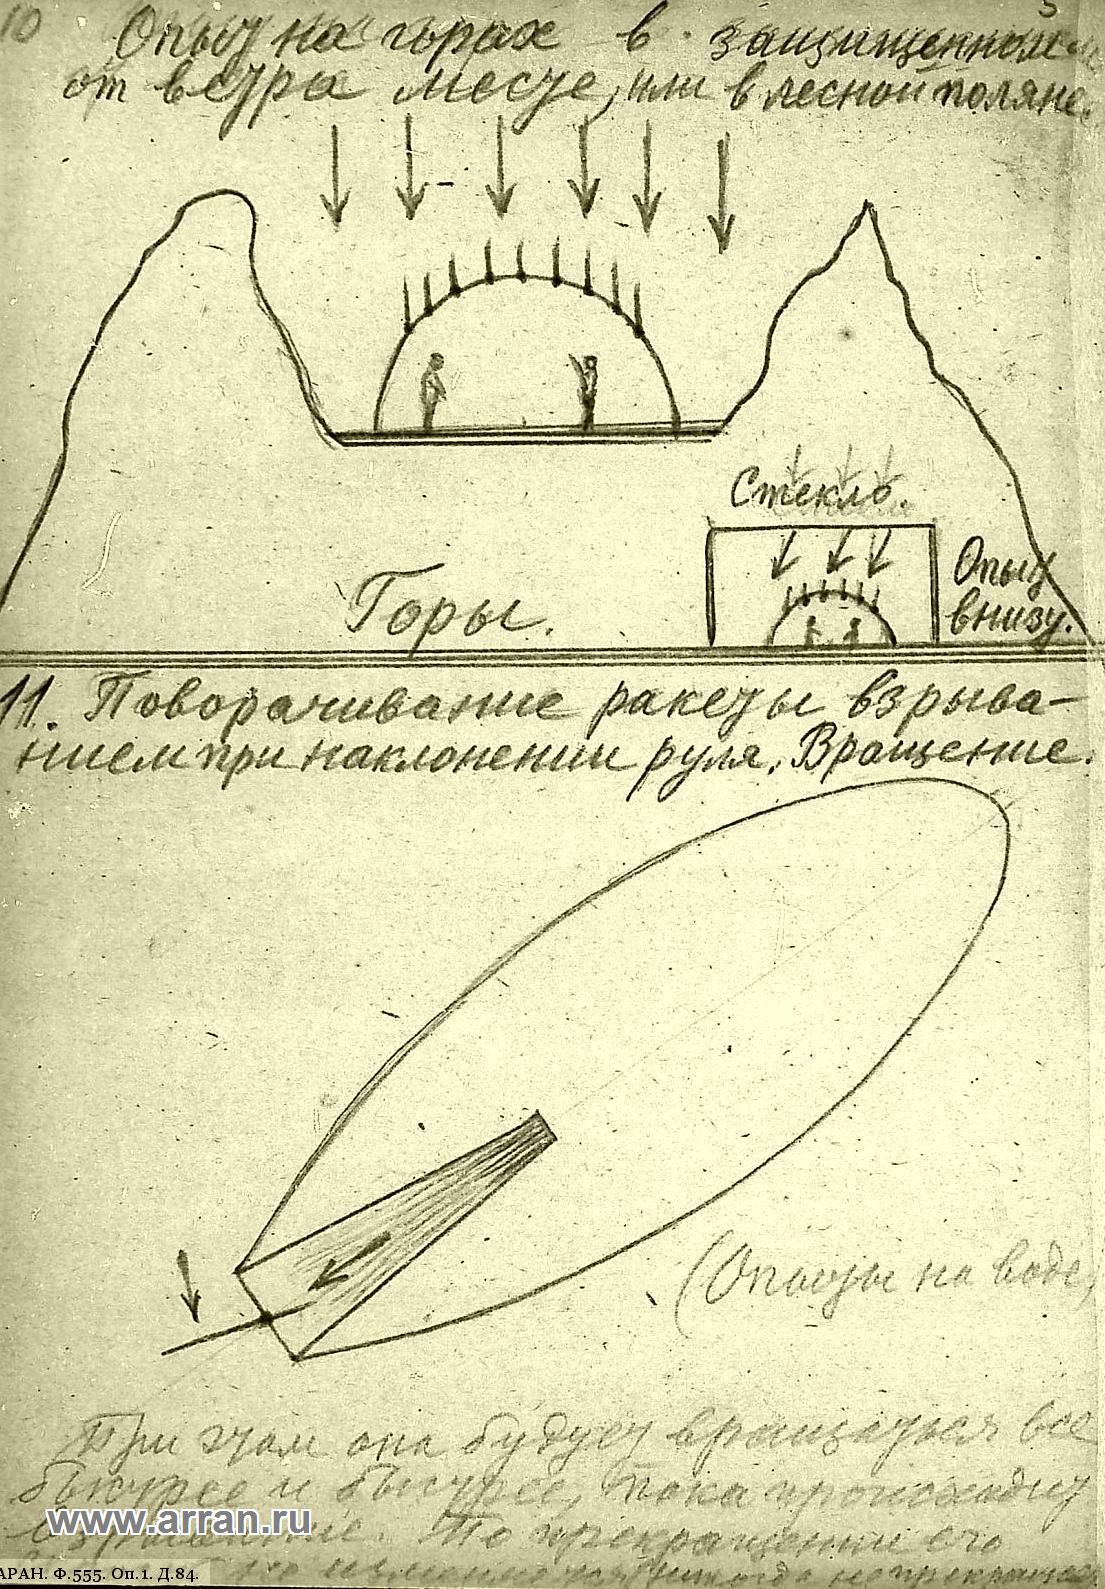 10
Опыт на горах в защищенном
от ветра месте, или в лесной поляне.
Стекло.
Опыт
внизу.
Горы.
11. Поворачивание ракеты взрыва-
нием при наклонении руля. Вращение.
(Опыты на воде)
При этом она будет вращаться все
быстрее и быстрее, пока происходит
По прекращение его
www.arran.ru
АРАН. Ф.555. Оп.1. Д.84.